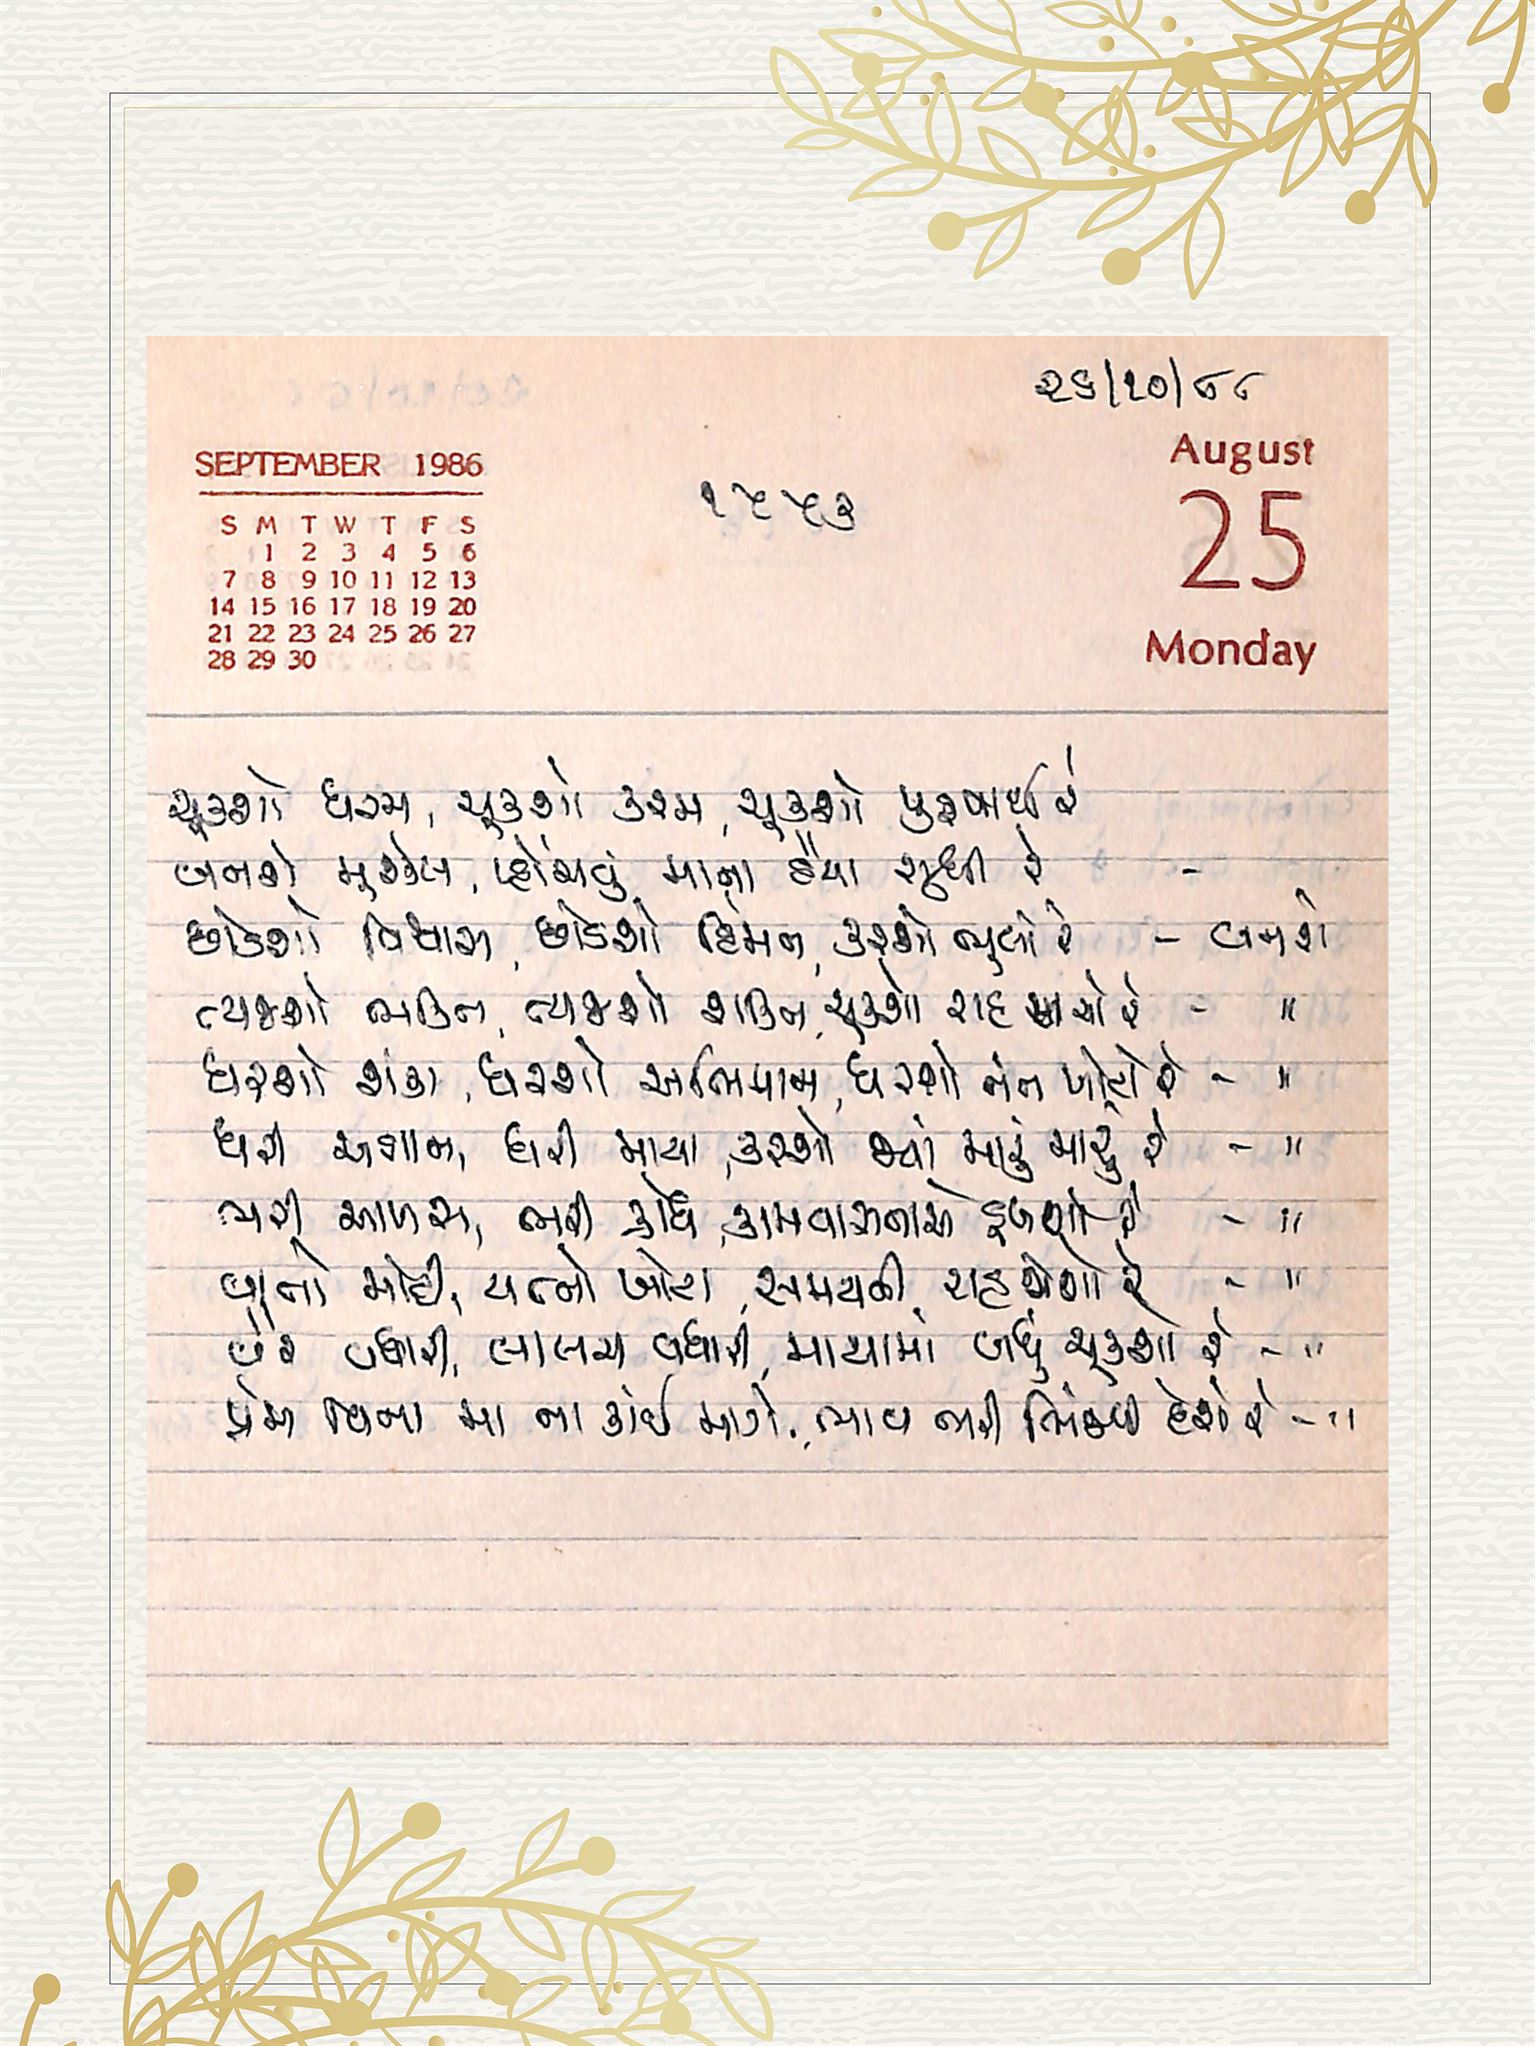 ૨૬/૧૦/૮૮
SEPTEMBER 1986
S M T W T F S
1 2 3 4 5 6
7 8 9 10 11 12 13
14 15 16 17 18 19 20
21 22 23 24 25 26 27
28 29 30
૧૫૫૩
August
25
Monday
ચૂકશો ધરમ, ચૂકશો કરમ, ચૂકશો પુરુષાર્થ રે
બનશે મુશ્કેલ, પ્હોંચવું માના હૈયા સુધી રે -
છોડશો વિશ્વાસ, છોડશો હિંમત, કરશો ભૂલો રે - બનશે
ત્યજશો ભક્તિ, ત્યજશો શક્તિ, ચૂકશો રાહ સાચો રે - "
ધરશો શંકા, ધરશો અભિમાન, ધરશો તંત ખોટો રે - "
ધરી અજ્ઞાન, ધરી માયા, કરશો જ્યાં મારું મારું રે - "
ભરી આળસ, ભરી ક્રોધ, કામવાસનાએ ડૂબશો રે - "
ભૂલો મોટી, યત્નો ખોટા, સમયની રાહ જોશો રે - "
વૈર વધારી, લાલચ વધારી, માયામાં બધું ચૂકશો રે - "
પ્રેમ વિના મા ના કાંઈ માગે, ભાવ ભરી ભિંજવી દેશે રે - "